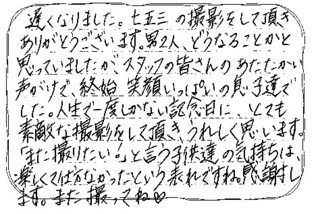 遅くなりました。七五三の撮影をして頂き
ありがとうございます。男2人、どうなることかと
思っていましたが、スタッフの皆さんのあたたかい
声がけで、終始笑顔いっぱいの息子達で
した。人生で一度しかない記念日に、とても
素敵な撮影をして頂き、うれしく思います。
「また撮りたい。」と言う子供達の気持ちは、
楽しくて仕方なかったという表れですね。感謝し
ます。また撮ってね♡